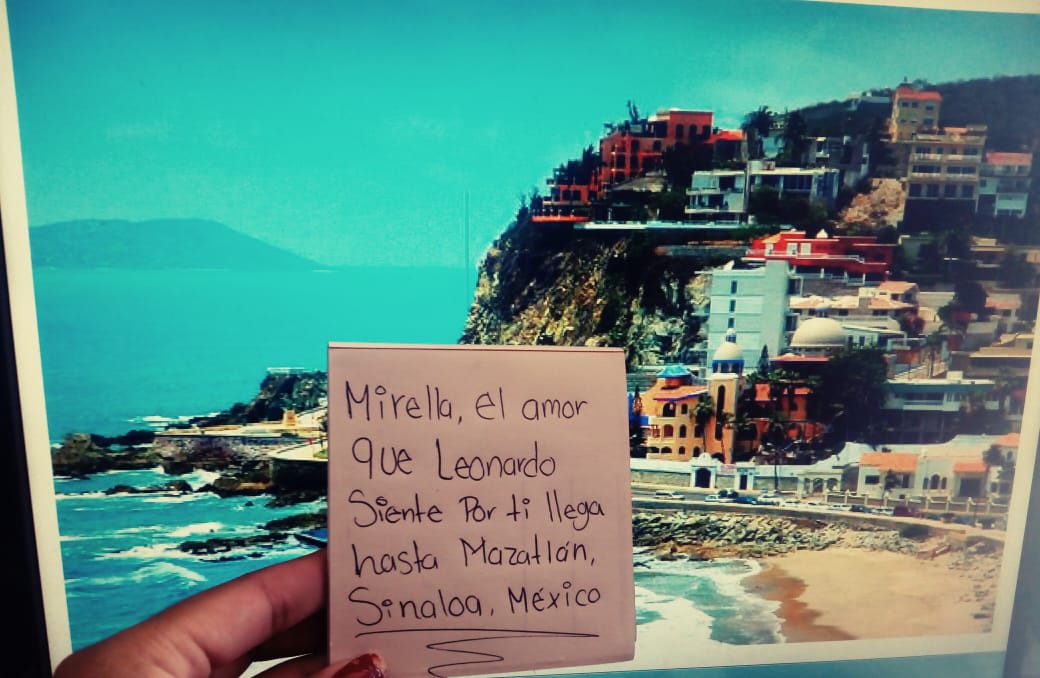 Mirella, el amor
que Leonardo
Siente Por ti llega
hasta Mazatlán,
Sinaloa, México